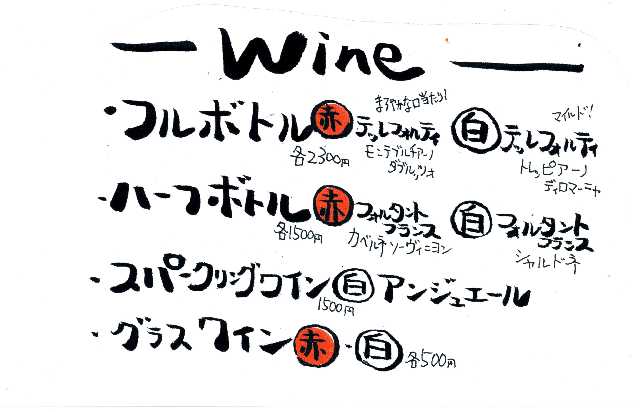 Wine
・フルボトル 赤 デッレフォルティ 白 デッレフォルティ
まろやかな口当たり! マイルド!
各2300円 モンテプルチアーノ トレッビアーノ
ダブルッツオ ディロマーニャ
・ハーフボトル 赤 フォルタント 白 フォルタント
フランス フランス
各1500円 カベルネソーヴィニヨン シャルドネ
・スパークリングワイン 白 アンジュエール
1500円
・グラスワイン 赤・白 各500円